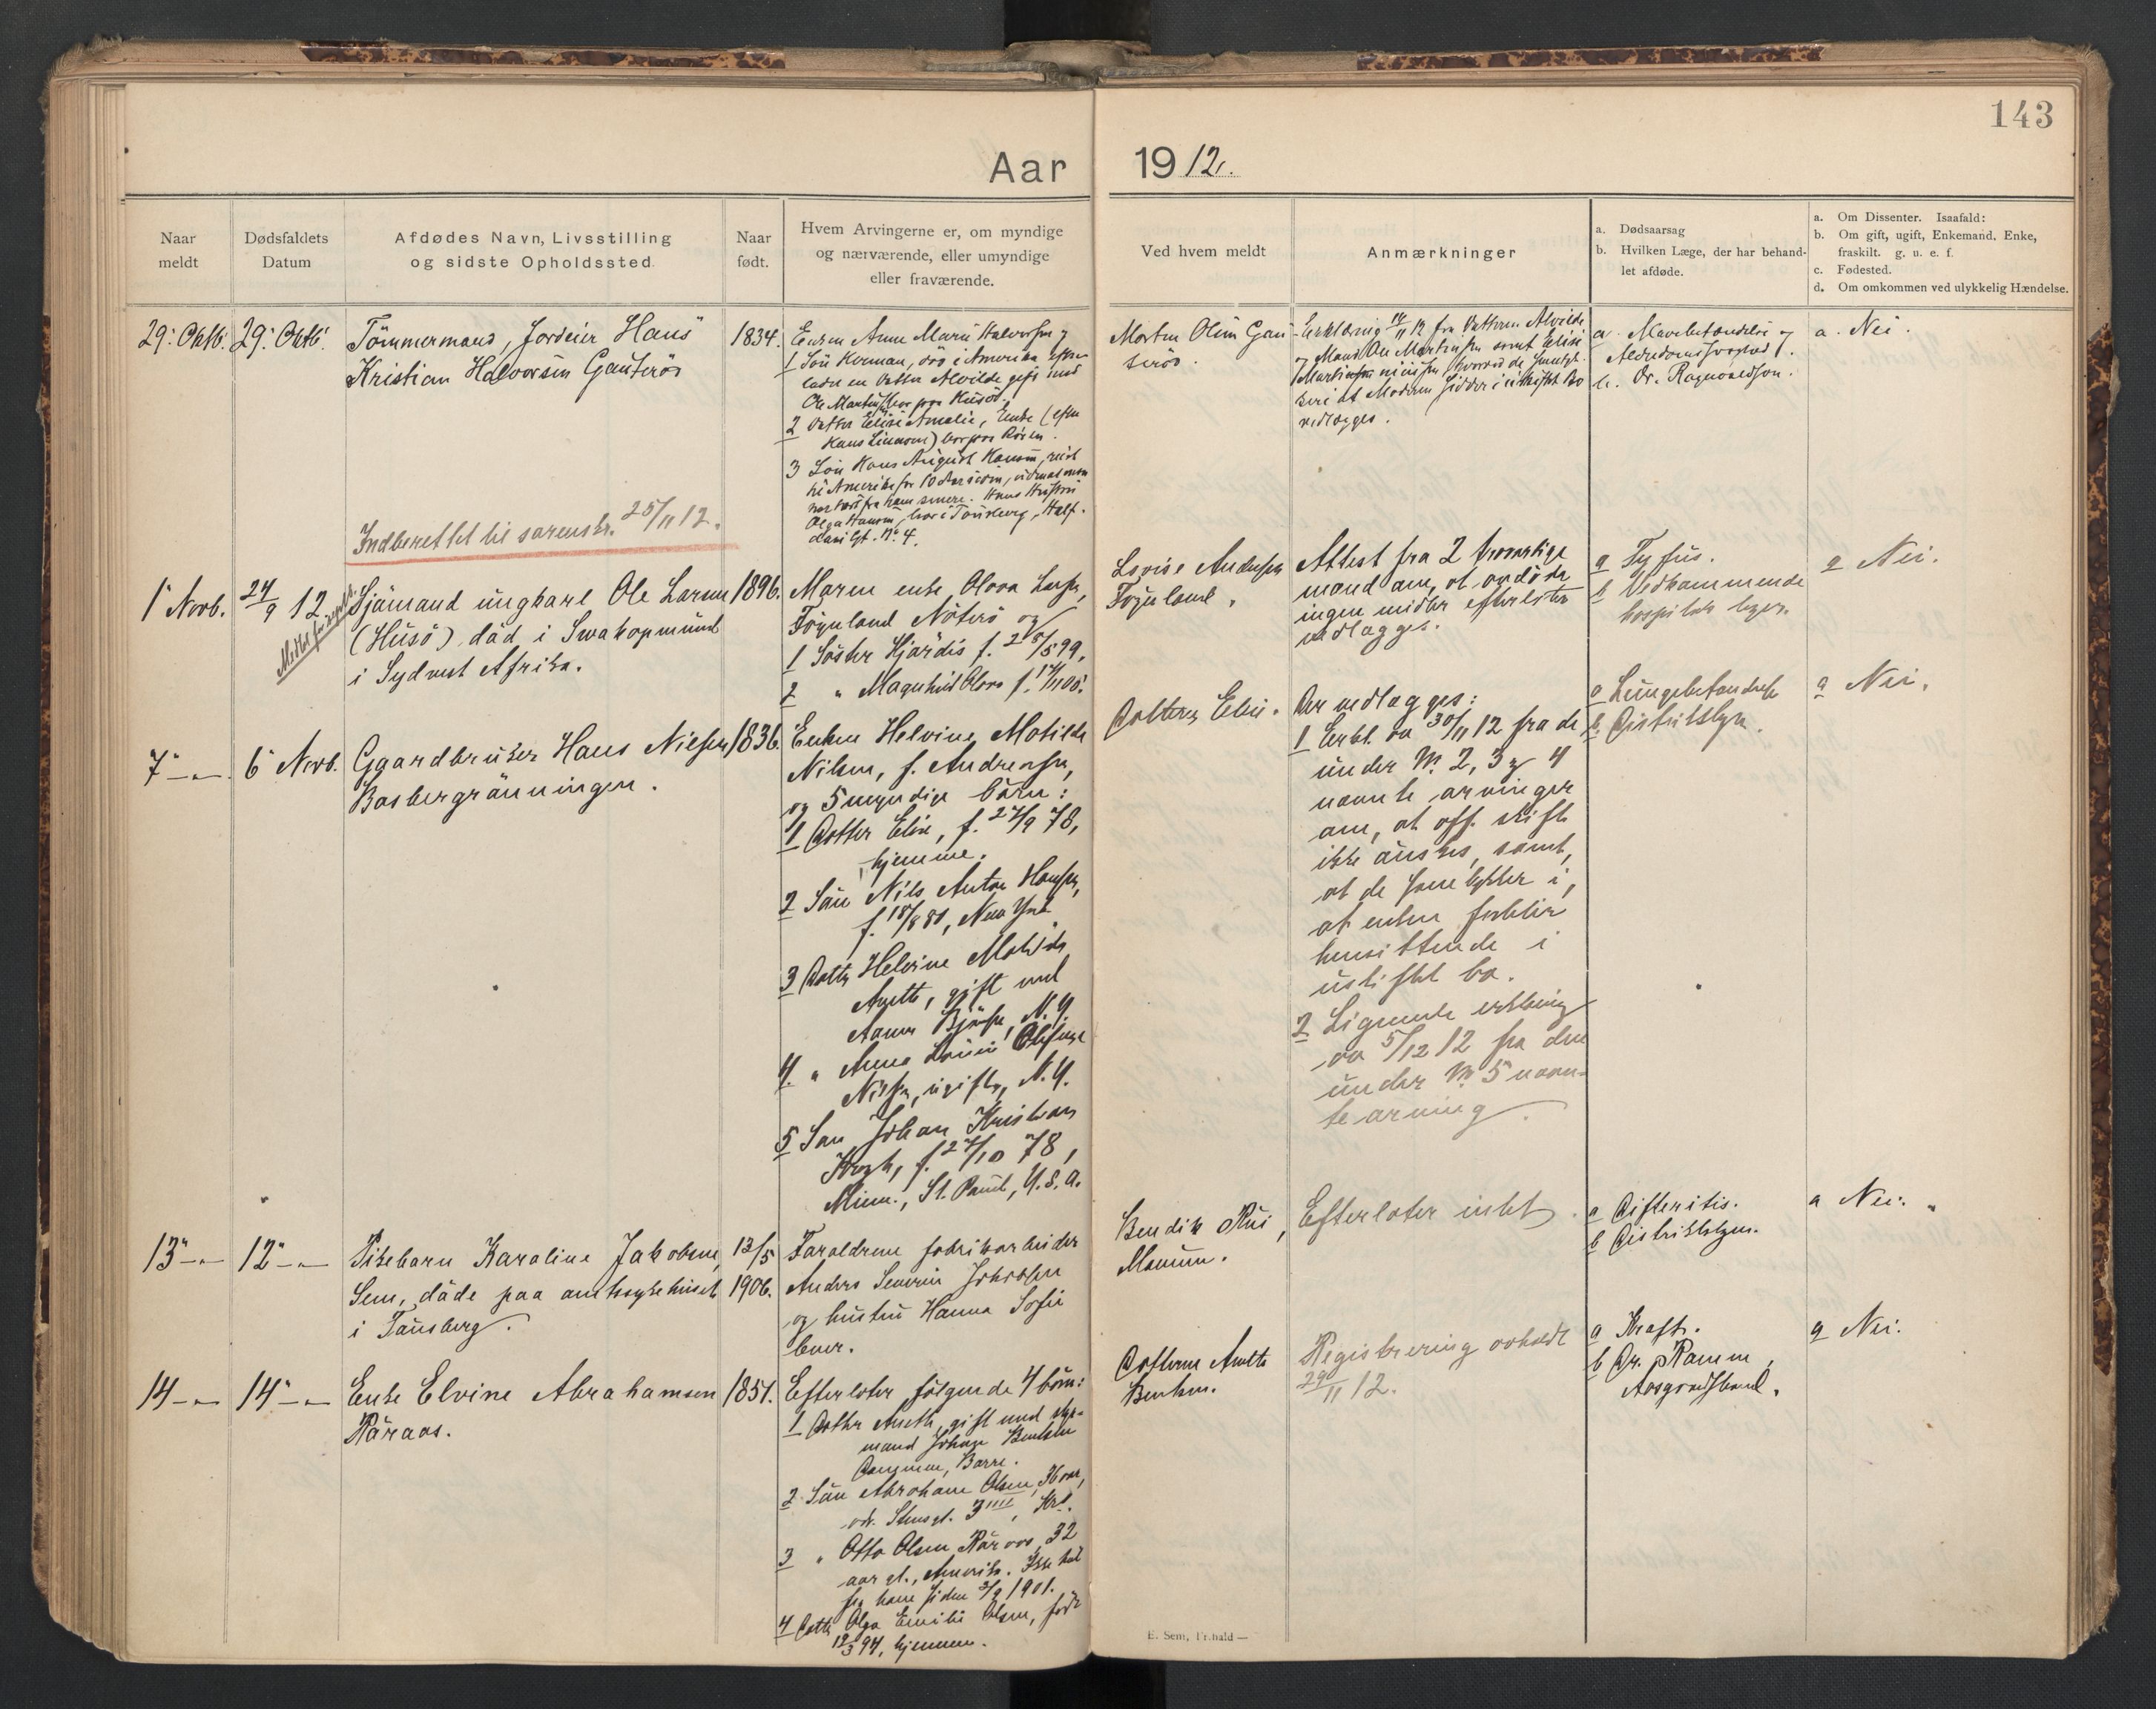 143
Aar 1912.
Naar meldt
Dødsfaldets Datum
Afdødes Navn, Livsstilling og sidste Opholdssted.
Naar født.
Hvem Arvingerne er, om myndige og nærværende, eller umyndige eller fraværende.
Ved hvem meldt
Anmærkninger
a. Dødsaarsag
b. Hvilken Læge, der har behandlet afdøde.
a. Om Dissenter. Isaafald:
b. Om gift, ugift, Enkemand, Enke, fraskilt. g. u. e. f.
c. Fødested.
d. Om omkommen ved ulykkelig Hændelse.
29. Oktb.
29. Oktb.
Tömmermand, Jordeier Hans
Kristian Halvorsen Gauterös
1834.
Enken Anne Marie Halvorsen og
1 Sön Herman, död i Amerika efter-
lader en Datter Alvilde gift med
Ole Martinsen bor paa Husö.
2 Datter Elise Amalie, Enke (efter
Hans Linnom) bor paa Rösen.
3 Sön Hans August Hansen, reist
til Amerika for 10 Aar siden, vidnat man
har hört fra ham senere. Hans Hustru
Olga Hansen, bor i Tönsberg, Half-
dans Gt. No. 4.
Morten Olsen Gau
terös.
Erklæring 14/11 12 fra Datteren Alvilde
og Mand Ole Martinsen samt Elise
vedlægges.
a. Mavebetændelse og
Alderdomssvaghed.
b. Dr. Ragnvaldson.
a. Nei.
Indberettet til sorenskr. 25/11 12.
1 Novb.
24/9 12
Sjömand ungkarl Ole Larsen
(Husö), död i Swakopmund
i Sydvest Afrika.
1896.
Moren enke Olava Larsen,
Föynland Nöterö og
1 Söster Hjördis f. 25/5 99,
2 " Magnhild Olava f. 14/11 05.
Lovise Andersen
Föynland.
Attest fra 2 troværdige
mænd om, at avdöde
ingen midler efterlater
vedlægges.
a Tyfus.
b Vedkommende
hospitals læger.
a Nei.
7 - " -
6 Novb.
Gaardbruker Hans Nielsen
Basbergrönningen.
1836.
Enken Helvine Matilde
Nilsen, f. Andreasen,
og 5 myndige börn:
1 Datter Elise, f. 27/9 78,
hjemme.
2 Sön Nils Anton Hansen,
f. 18/8 81, New York
3 Datter Helvine Matilde
Anette, gift med
N. Y.
4. " Anna Lovise Olefine
Nilsen, ugift, N. Y.
5 Sön Johan Kristian
Krogh, f. 27/10 78,
Minn., St. Paul, U. S. A.
Datteren Elise.
Der vedlægges:
1 Erkl. av 30/11 12 fra de
under Nr. 2, 3 og 4
nævnte arvinger
om, at off. skifte
ikke önskes, samt,
at de samtykker i,
at enken forblir
hensittende i
uskiftet bo.
2 Lignende erklæring
av 5/12 12 fra den
under Nr. 5 nævn-
te arving.
a Lungebetændelse
b. Distriktslægen.
a Nei.
13 - " -
12 - " -
Pikebarn Karoline Jakobsen,
Sem, döde paa amtssykehuset
i Tönsberg.
13/5 1906.
Foraldrene fabrikarbeider
Anders Severin Jakobsen
og hustru Hanna Sofie
lever.
Bendik Rui,
Efterlater intet.
a Difteritis.
b Distriktslægen.
a Nei.
14 - " -
14 - " -
Enke Elvine Abrahamsen
Råraas.
1851.
Efterlater fölgende 4 börn:
1 Datter Anette, gift med styr-
mand Johan Bentsen
Borre.
2 Sön Abraham Olsen, 36 aar,
adr. Stensgt. 3 IIII, Kra.
3 " Otto Olsen Råraas, 32
aar gl., Amerika. Ikke hört
fra ham siden 3/9 1901.
4 Datter Olga Emilie Olsen, född
19/3 94, hjemme.
Datteren Anette
Bentsen.
Registrering avholdt
29/11 12.
a Kræft.
b Dr. Ramm,
Aasgaardstrand.
a Nei.
E. Sem, Fr.hald —